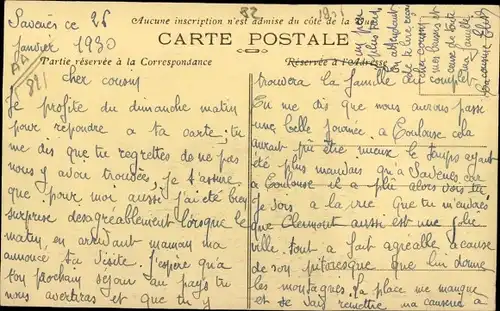 Savères ce 26
Janvier 1930
Aucune inscription n'est admise du côté de la
CARTE POSTALE
Partie réservée à la Correspondance
Réservée à l'Adresse
cher cousin
Je profite du dimanche matin
pour répondre a ta carte, tu
me dis que tu regrettes de ne pas
nous y avoir trouvées. Je t'assure
que pour moi aussi j'ai été bien
surprise desagréablement lorsque le
matin, en arrivant maman m'a
annoncé ta visite. J'espère qu'a
ton prochain séjour au pays tu
nous avertiras et que tu y
trouvera la famille au complet
Tu me dis que nous aurons passé
une belle journée a Toulouse cela
aurait pu être mieux le temps ayant
été plus mauvais qu'a Savères car
a Toulouse il a plu alors vois tu
Je vois a la vue que tu m'andrés
que Clermont aussi est une jolie
ville. Tout a fait agréable a cause
de son pittoresque que lui donne
les montagnes. La place me manque
et je vais remettre ma causerie a
un peu
plus tard.
En attendant
de te lire reçois
cher cousin
mes baisers et
ceux de toute
la famille
Ta cousine